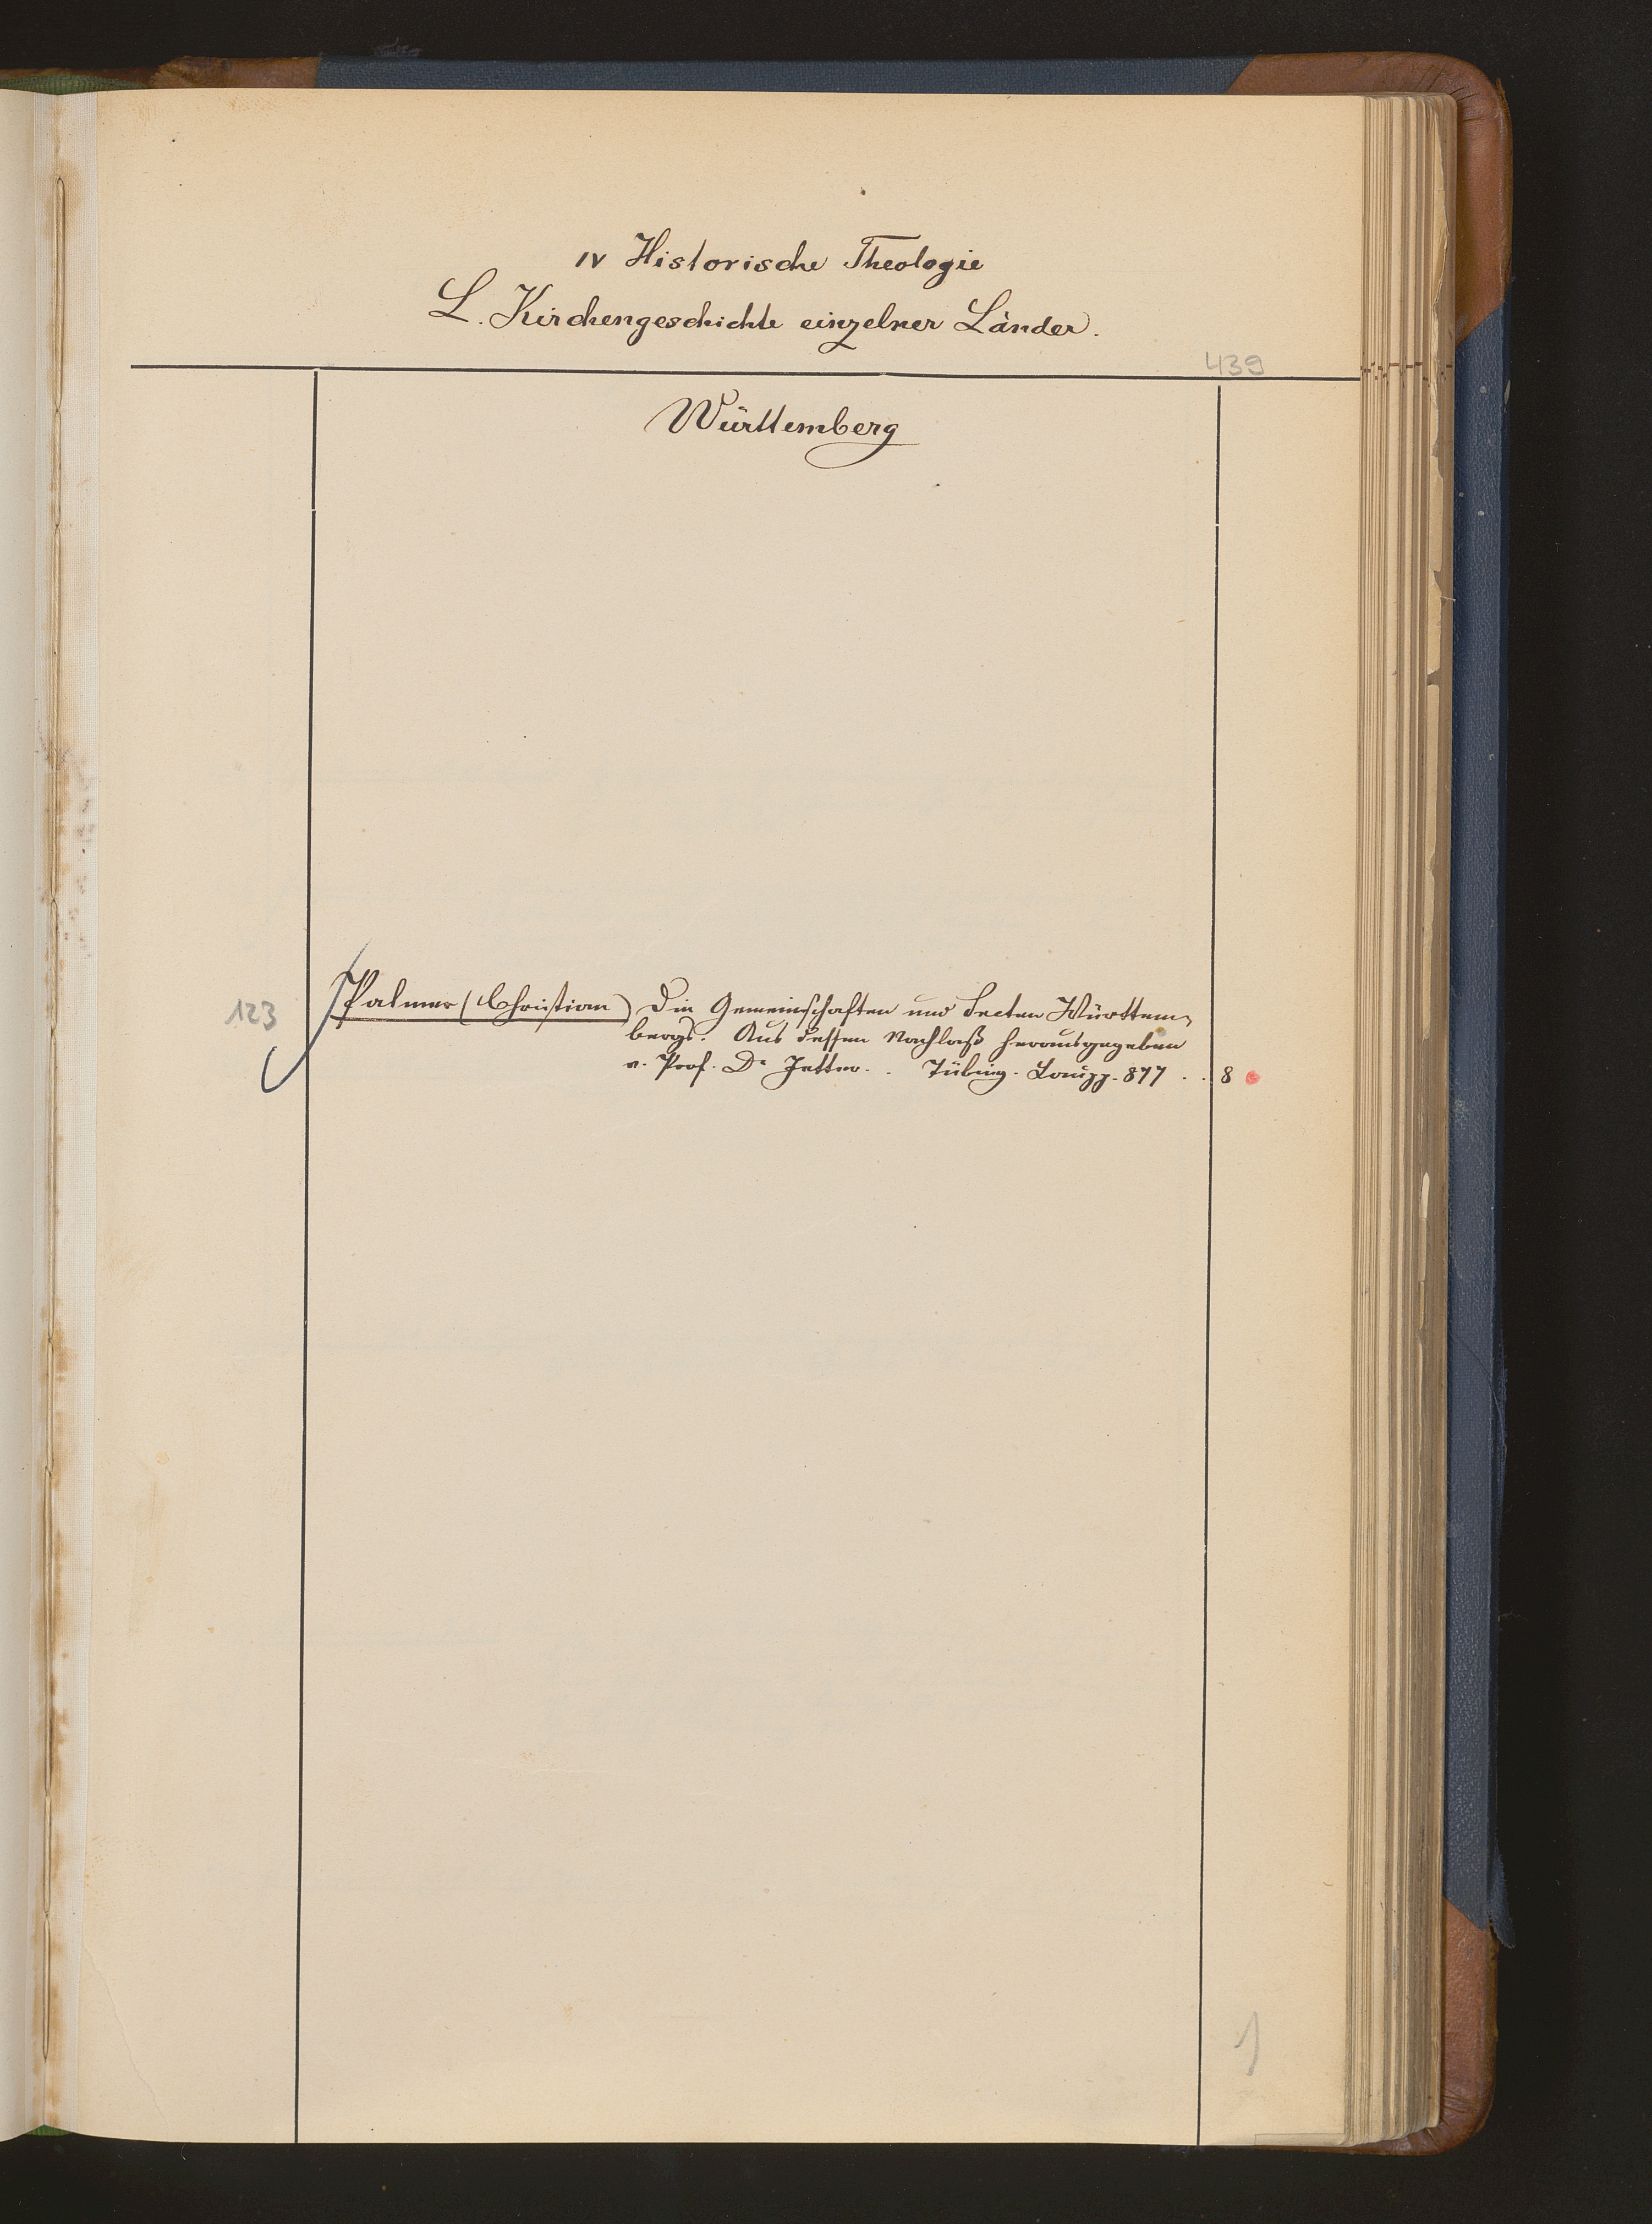 IV Historische Theologie
L. Kirchengeschichte einzelner Länder.
439
Württemberg
123 Palmer (Christian) Die Gemeinschaften und Secten Württem-
bergs. Aus dessen Nachlaß herausgegeben
v. Prof. Dr Jetter. . Tübing. Laupp. 877 . . 8
1